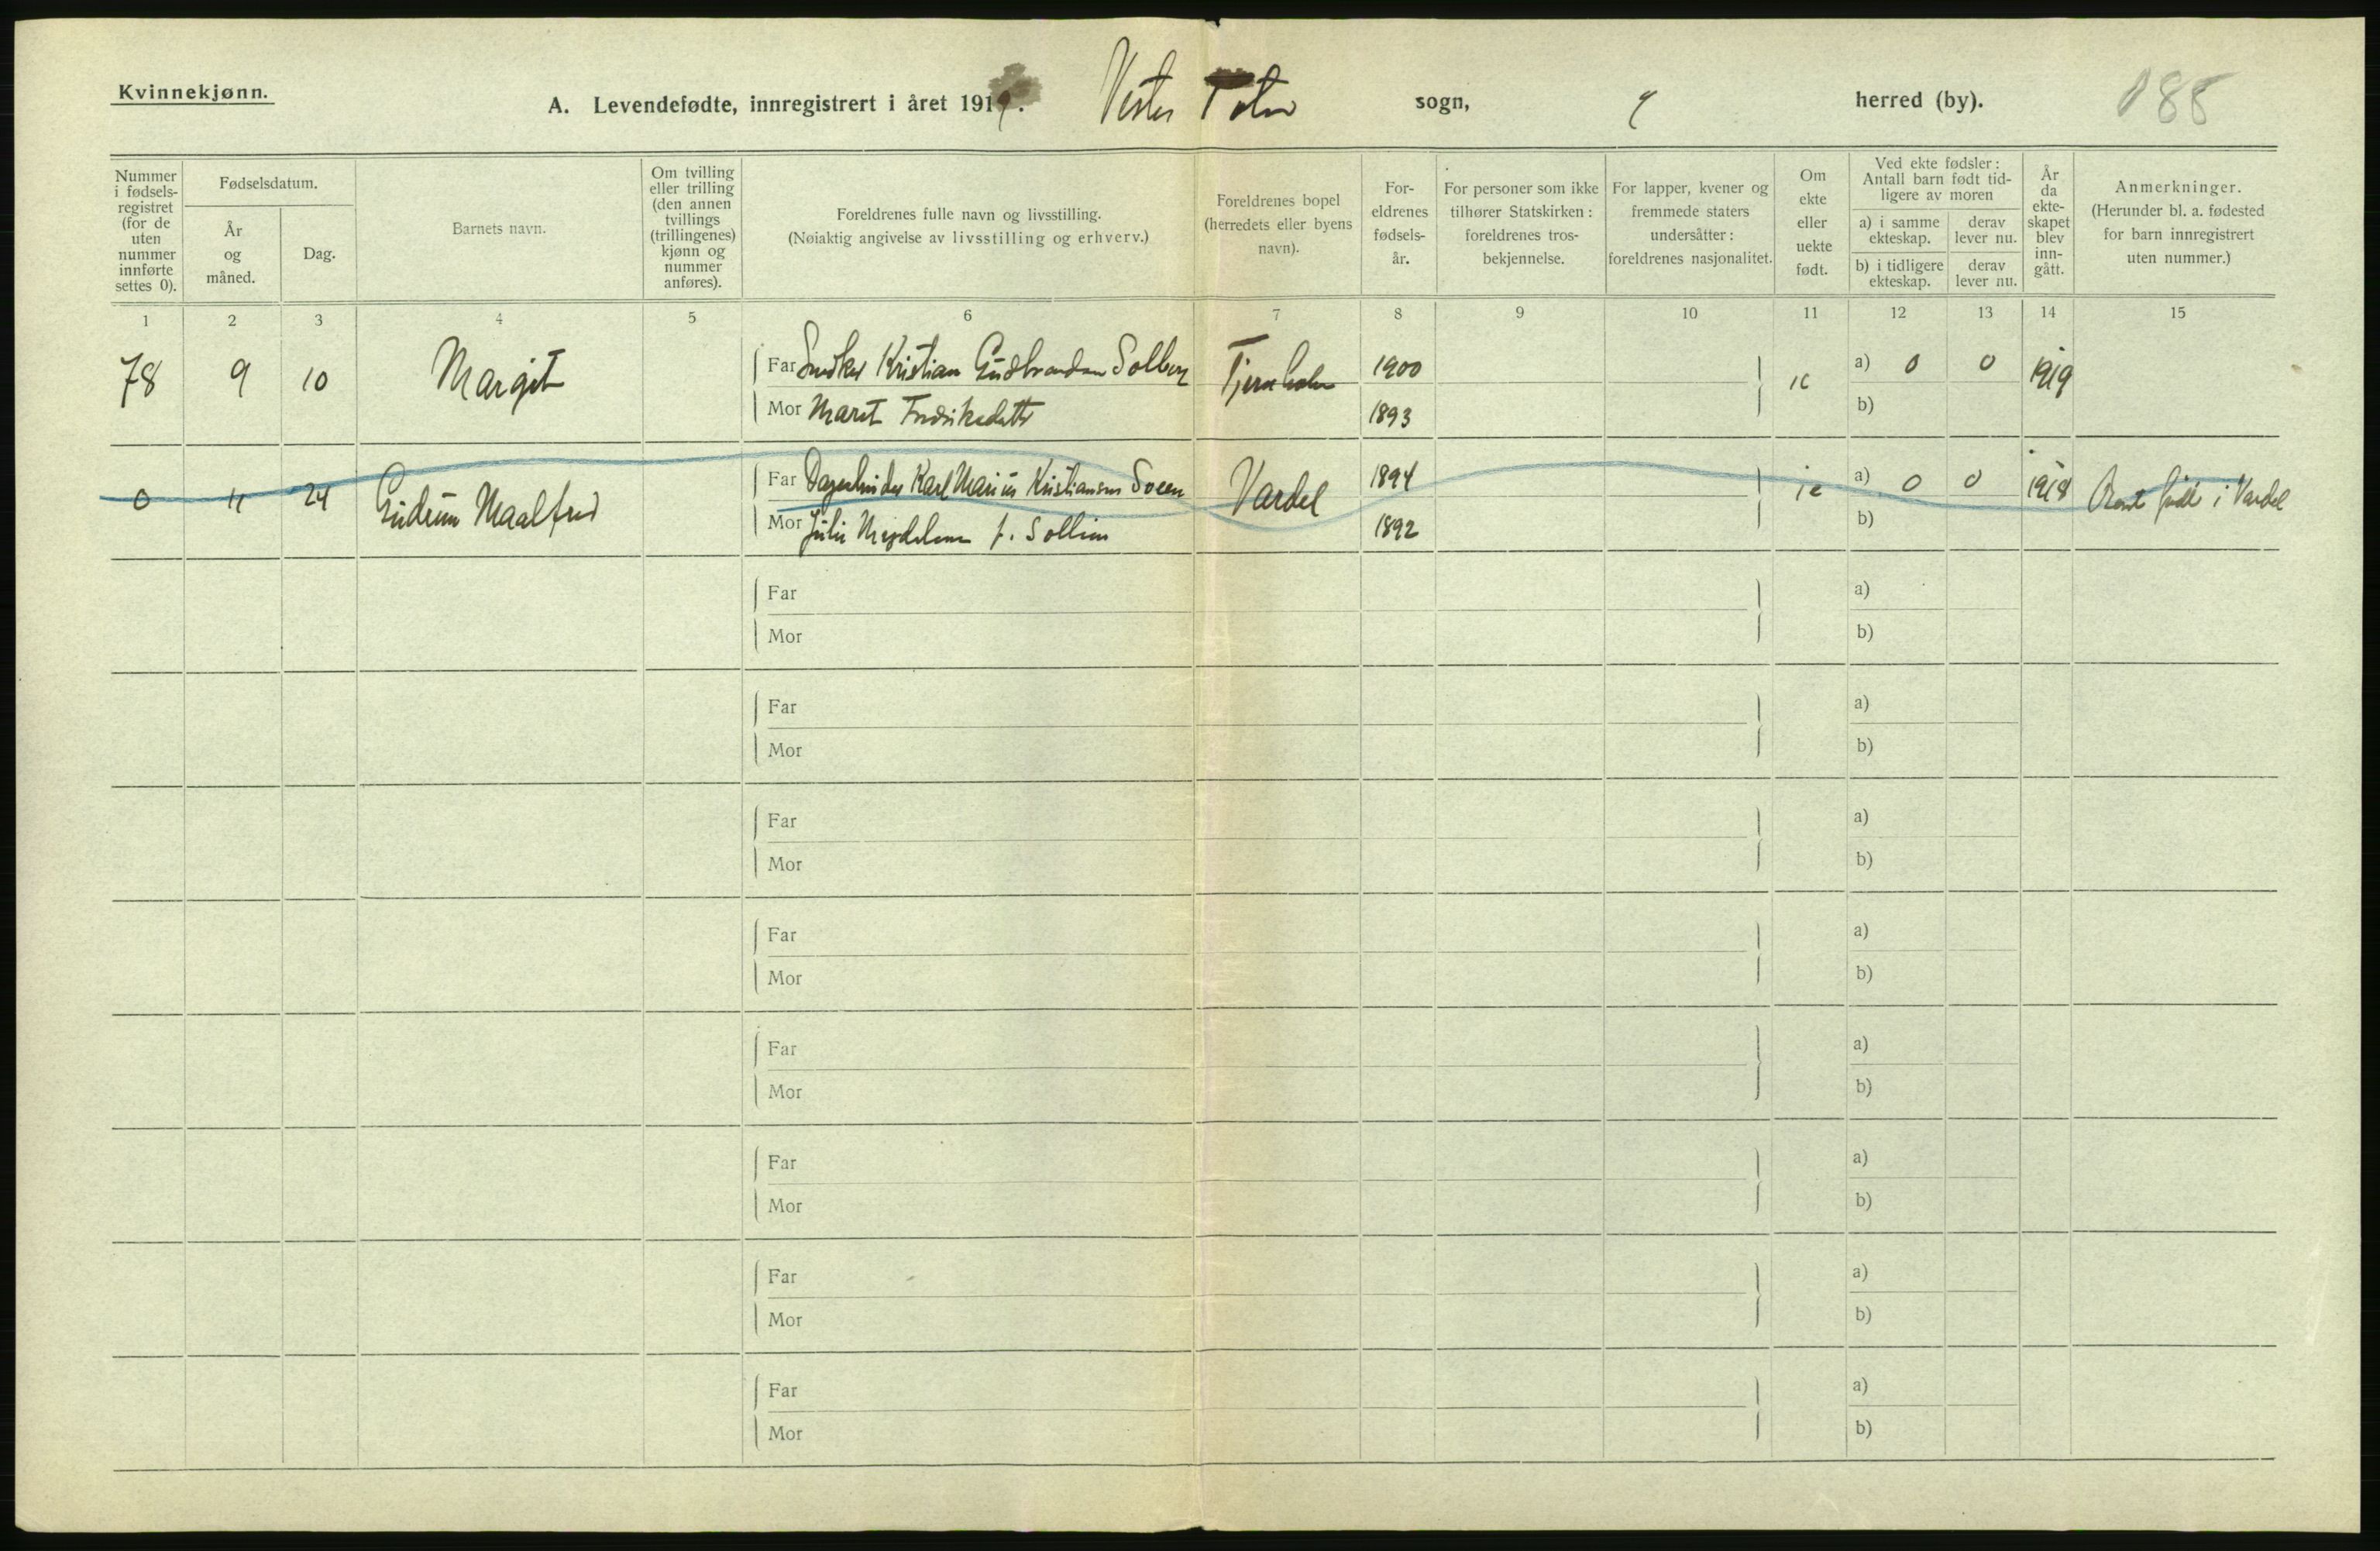 Kvinnekjønn.
A. Levendefødte, innregistrert i året 1919. Vester Toten sogn, herred (by). 188
Nummer i fødselsregistret (for de uten nummer innførte settes 0).
Fødselsdatum.
År og måned.
Dag.
Barnets navn.
Om tvilling eller trilling (den annen tvillings (trillingenes) kjønn og nummer anføres).
Foreldrenes fulle navn og livsstilling.
(Nøiaktig angivelse av livsstilling og erhverv.)
Foreldrenes bopel (herredets eller byens navn).
Foreldrenes fødselsår.
For personer som ikke tilhører Statskirken: foreldrenes trosbekjennelse.
For lapper, kvener og fremmede staters undersåtter: foreldrenes nasjonalitet.
Om ekte eller uekte født.
Ved ekte fødsler: Antall barn født tidligere av moren
a) i samme ekteskap.
derav lever nu.
b) i tidligere ekteskap.
derav lever nu.
År da ekteskapet blev inngått.
Anmerkninger.
(Herunder bl. a. fødested for barn innregistrert uten nummer.)
1 2 3 4 5 6 7 8 9 10 11 12 13 14 15
78 9 10 Margit Far Snedker Kristian Gudbrandsen Solberg 1900 a) 0 0 1919
Mor Marit Fredriksdatter 1893 b)
0 11 24 Gudrun Maalfrid Far Karl Marius Kristiansen Soeen Vardal 1894 a) 0 0 1918 født i Vardal
Mor Julie Magdalena f. Sollien 1892 b)
Far a)
Mor b)
Far a)
Mor b)
Far a)
Mor b)
Far a)
Mor b)
Far a)
Mor b)
Far a)
Mor b)
Far a)
Mor b)
Far a)
Mor b)